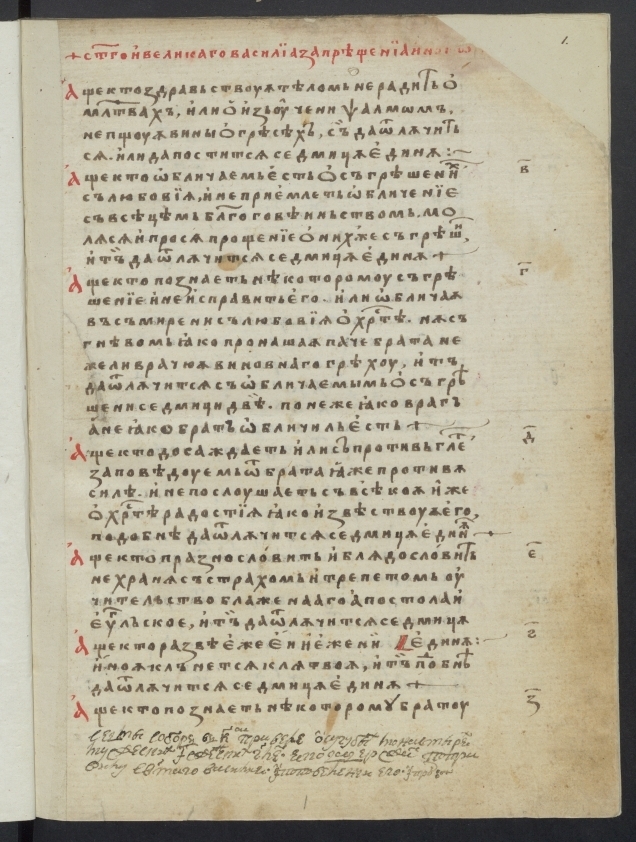 + ст҃го и великаго василїа запрѣщенїа
1.
Аще кто здравьствоуѧ тѣломь не радить ѡ
мл҃твахъ, или ѿ изьоучени ѱалмωмъ,
непщоуѧ вины ѡ грѣсѣхъ, съ да ѿлѫчить
сѧ. или да постится седмицѫ єдинѫ :~
Аще кто ѡбличаемь єсть ѡ съгрѣшени
съ любовїѫ, и не приємлеть ѡбличенїє
съ всѣцѣмь бл҃гоговѣиньствомь. мо
лѧсѧ и просѧ прощенїє ѡ нихже съгрѣши
и тъ да ѿлѫчится седмицѫ єдинѫ +
в҃
Аще кто познаеть нѣкоторомоу съгрѣ
шенїє и не исправить єго. или ѡбличаѧ
въ съмирени съ любовїѫ ѡ хр҃тѣ. нѫ съ
гнѣвомь ꙗко проношаѧ паче брата не
жели врачюѫ виновнаго грѣхоу, и тъ
да ѿлѫчится съ ѡбличаемымь ѡ съгрѣ
шени седмици двѣ. понеже ꙗко врагъ
а не ꙗко братъ ѡбличиль єсть +
г҃
Аще кто досаждаеть или съпротивь гл҃еть
заповѣдоуємь ѿ брата ꙗже противѫ
силѣ. и не послоушаєть съ всѣкоѫ иже
ѡ хр҃тѣ радостїѫ ꙗко извѣствоуѫ єго,
подобнѣ да ѿлѫчится седмицѫ єдинѫ +
д҃
Аще кто празнословить и блѧдословить
не хранѧ съ страхомь и трепетомь оу
чительство блаженааго апостола и
єѵг҃льское, и тъ да ѿлѫчится седмицѫ
є҃
єдинѫ :
Аще кто развѣ єже єи и єже ни
иноѫ клънется клѧтвоѫ, и тъ подобнѣ
да ѿлѫчится седмицѫ єдинѫ +
ѕ҃
Аще кто познаеть нѣкоторомꙋ братоу
з҃